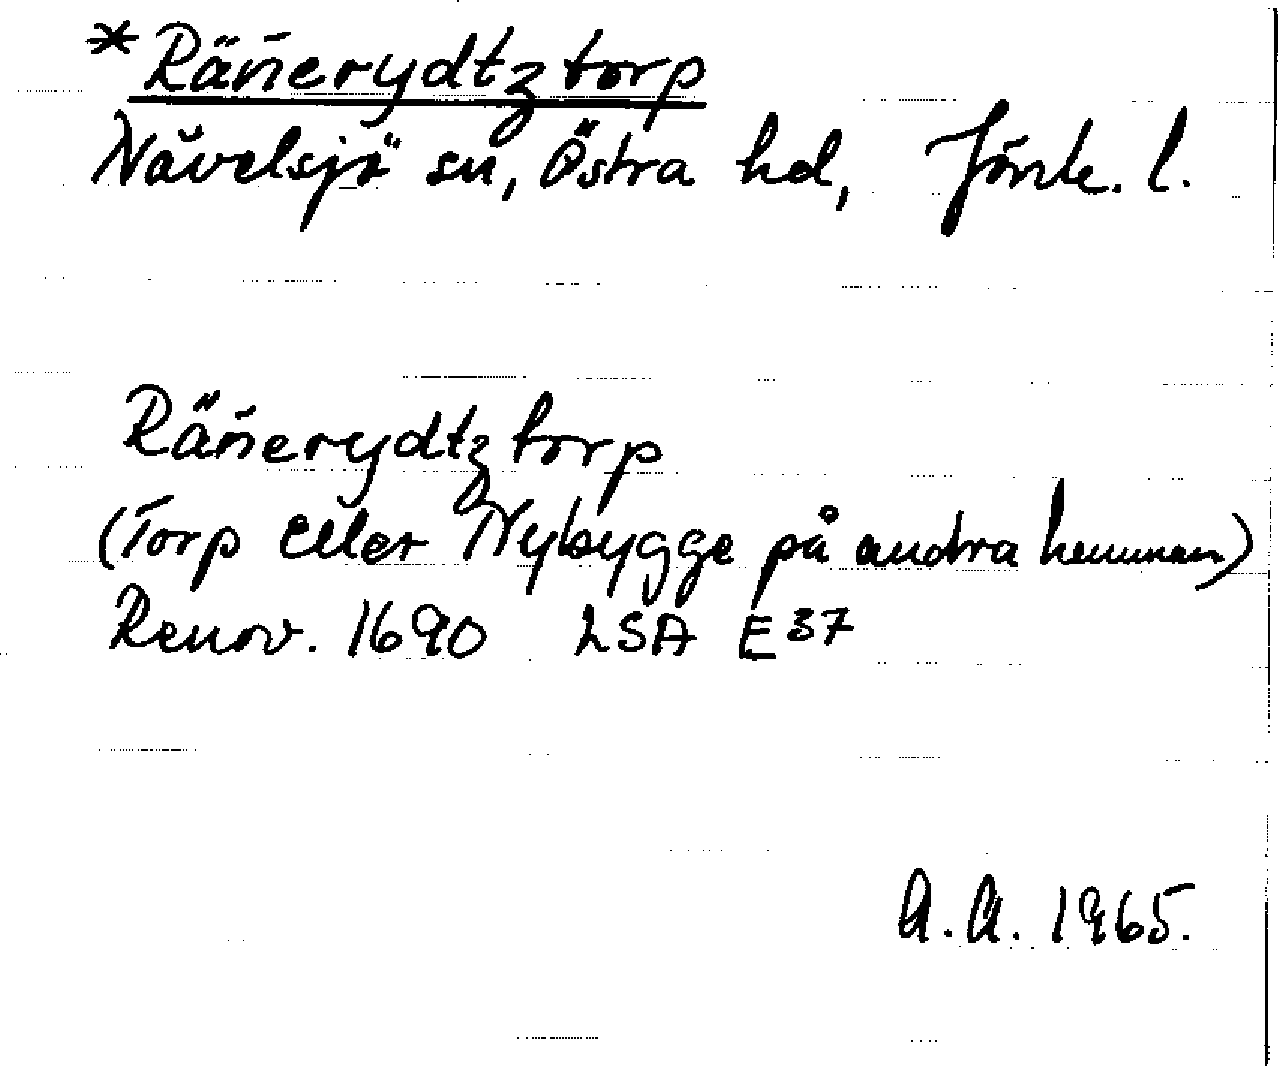 *Rän̄erydtz torp
Nävelsjö sn, Östra hd, Jönk. l.
Rän̄erydtz torp
(Torp eller Nybygge på andra hemman)
Renov. 1690 LSA E37
A.A. 1965.